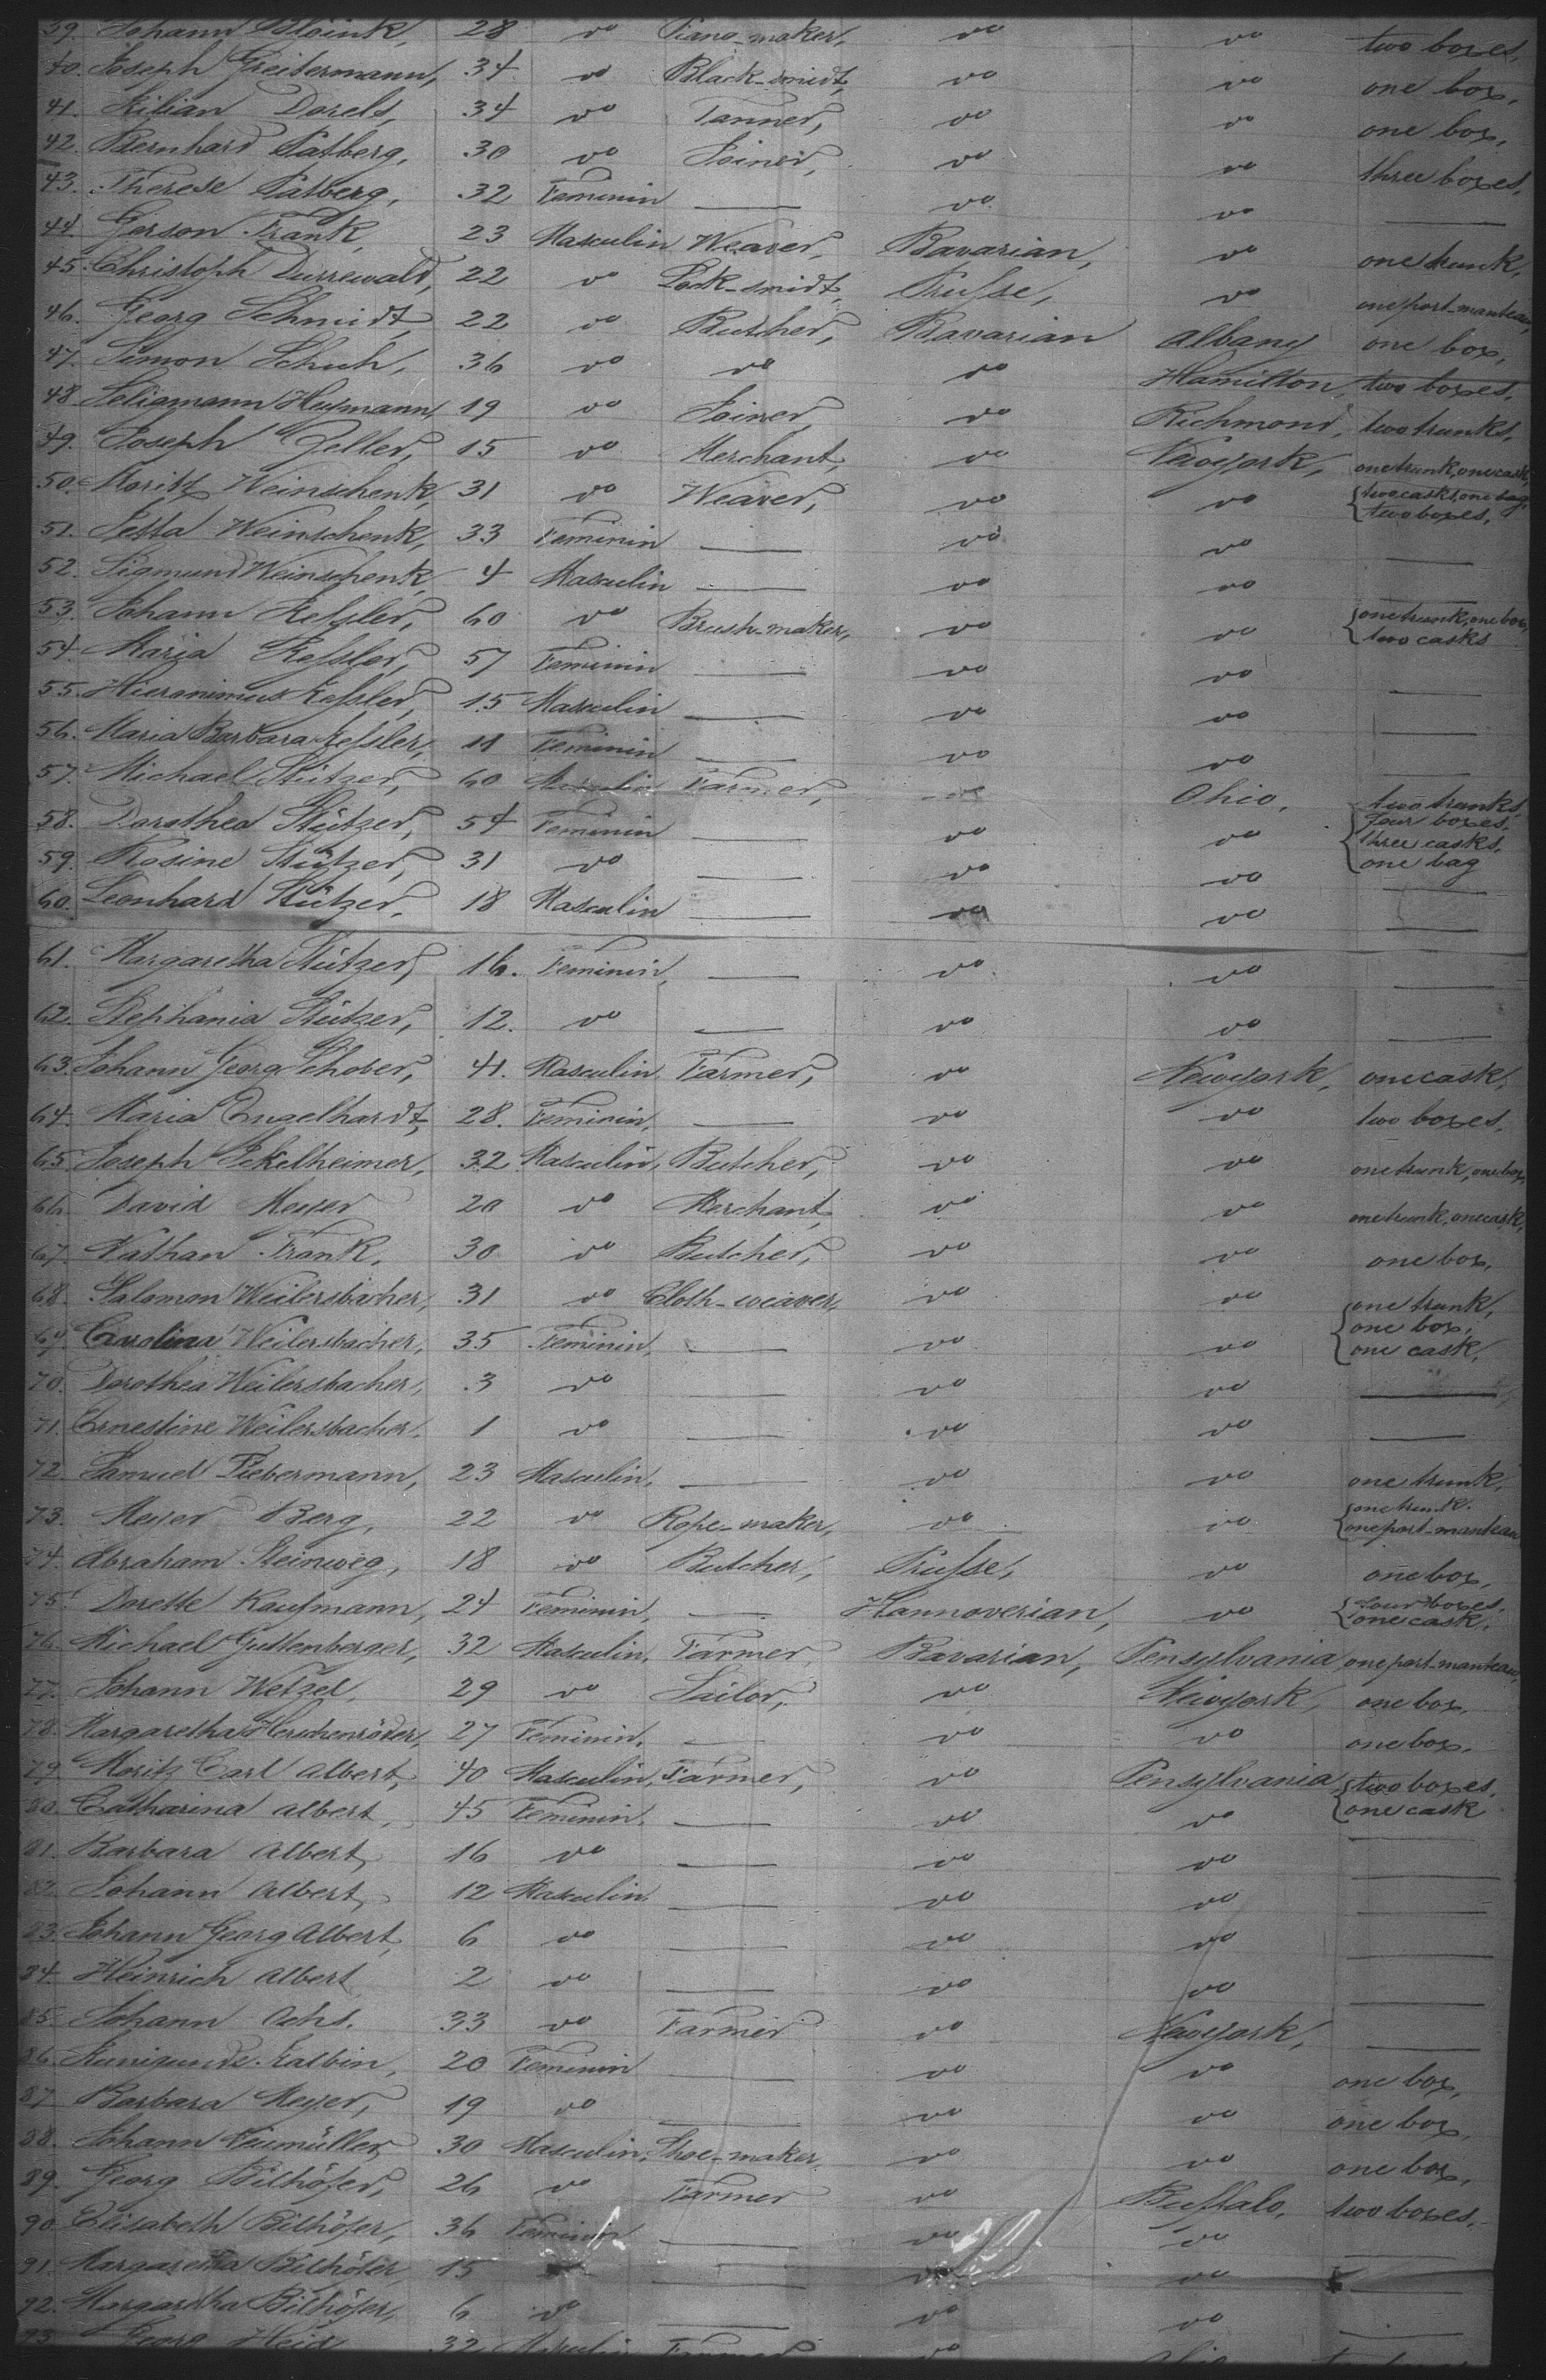 39. Johann Bloink, 28 do Piano-maker, do do two boxes,
40. Joseph Greitermann, 34 do Black-smidt, do do one box,
41. Kilian Dorels, 34 do Tanner, do do one box,
42. Bernhard Patberg, 30 do Joiner, do do three boxes,
43. Therese Patberg, 32 Feminin — do do —
44. Gerson Frank, 23 Masculin Weaver, Bavarian, do one trunk,
45. Christoph Durrewald, 22 do Lock-smidt, Prusse, do one port-manteau,
46. Georg Schmidt, 22 do Butcher, Bavarian Albany one box,
47. Simon Schuh, 36 do do do Hamilton two boxes,
48. Seligmann Husmann, 19 do Joiner, do Richmond, two trunks,
49. Joseph Zeller, 15 do Merchant, do Newyork, one trunk, one cask,
50. Moritz Weinschenk, 31 do Weaver, do do two casks, one bag, two boxes,
51. Jetta Weinschenk, 33 Feminin — do do —
52. Sigmund Weinschenk, 4 Masculin — do do —
53. Johann Kessler, 60 do Brush-maker, do do one trunk, one box, two casks
54. Maria Kessler, 57 Feminin — do do —
55. Hieronimus Kessler, 15 Masculin — do do —
56. Maria Barbara Kessler, 11 Feminin — do do —
57. Michael Stützer, 60 Masculin Farmer, do Ohio, two trunks
58. Dorothea Stützer, 54 Feminin — do do four boxes, three casks,
59. Rosine Stützer, 31 do — do do one bag
60. Leonhard Stützer, 18 Masculin — do do —
61. Margaretha Stützer, 16. Feminin, — do do —
62. Stephania Stützer, 12. do — do do —
63. Johann Georg Schober, 41. Masculin, Farmer, do Newyork, one cask,
64. Maria Engelhardt, 28. Feminin, — do do two boxes,
65. Joseph Ickelheimer, 32 Masculin, Butcher, do do one trunk, one box,
66. David Meyer 20 do Merchant, do do one trunk, one cask,
67. Nathan Frank, 30 do Butcher, do do one box,
68. Salomon Weilersbacher, 31 do Cloth-weaver, do do one trunk,
69. Carolina Weilersbacher, 35 Feminin, — do do one box, one cask,
70. Dorothea Weilersbacher, 3 do — do do —
71. Ernestine Weilersbacher, 1 do — do do —
72. Samuel Liebermann, 23 Masculin, — do do one trunk,
73. Meyer Berg, 22 do Rope-maker, do do one trunk, one port-manteau
74. Abraham Steinweg, 18 do Butcher, Prusse, do one box,
75. Dorette Kaufmann, 24 Feminin, — Hannoverian, do four boxes, one cask,
76. Michael Guttenberger, 32 Masculin, Farmer, Bavarian, Pensylvania one port-manteau,
77. Johann Wetzel, 29 do Sailor, do Newyork, one box,
78. Margaretha Herchenröder, 27 Feminin, — do do one box,
79. Moritz Carl Albert, 40 Masculin, Farmer, do Pensylvania two boxes,
80. Catharina Albert, 45 Feminin, — do do one cask
81. Barbara Albert, 16 do — do do —
82. Johann Albert, 12 Masculin, — do do —
83. Johann Georg Albert, 6 do — do do —
84. Heinrich Albert 2 do — do do —
85. Johann Ochs. 33 do Farmer do Newyork, —
86. Kunigunde Kalbin, 20 Feminin — do do one box,
87. Barbara Meyer, 19 do — do do one box,
88. Johann Neumüller, 30 Masculin, Shoe-maker, do do one box,
89. Georg Bilhöfer, 26 do Farmer do Buffalo, two boxes,
90. Elisabeth Bilhöfer, 36 Feminin — do do —
91. Margaretha Bilhöfer, 15 do — do do —
92. Margaretha Bilhöfer, 6 do — do do —
93. Georg Heid 32 Masculin Farmer do Ohio